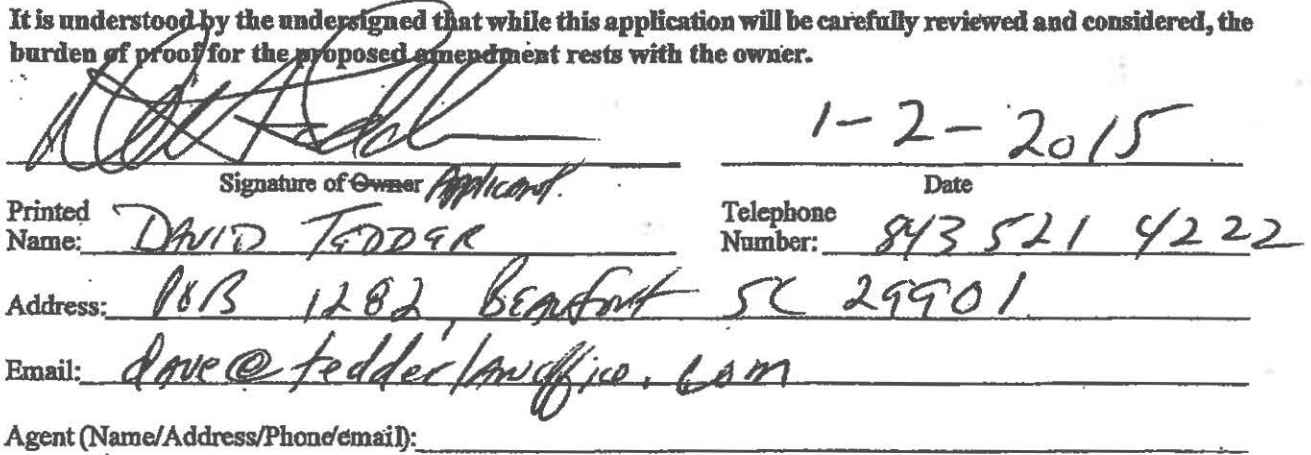 It is understood by the undersigned that while this application will be carefully reviewed and considered, the
burden of proof for the proposed amendment rests with the owner.
1-2-2015
Signature of Owner Applicant. Date
Printed Name: DAVID TEDDER Telephone Number: 843 521 4222
Address: POB 1282, BEAUFORT SC 29901
Email: dave@tedderlawoffice.com
Agent (Name/Address/Phone/email):